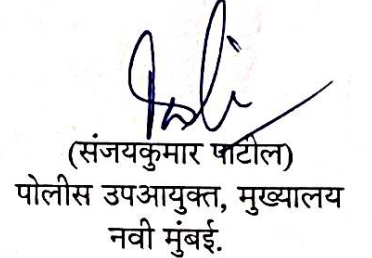 (संजयकुमार पाटील)
पोलीस उपआयुक्त, मुख्यालय
नवी मुंबई.